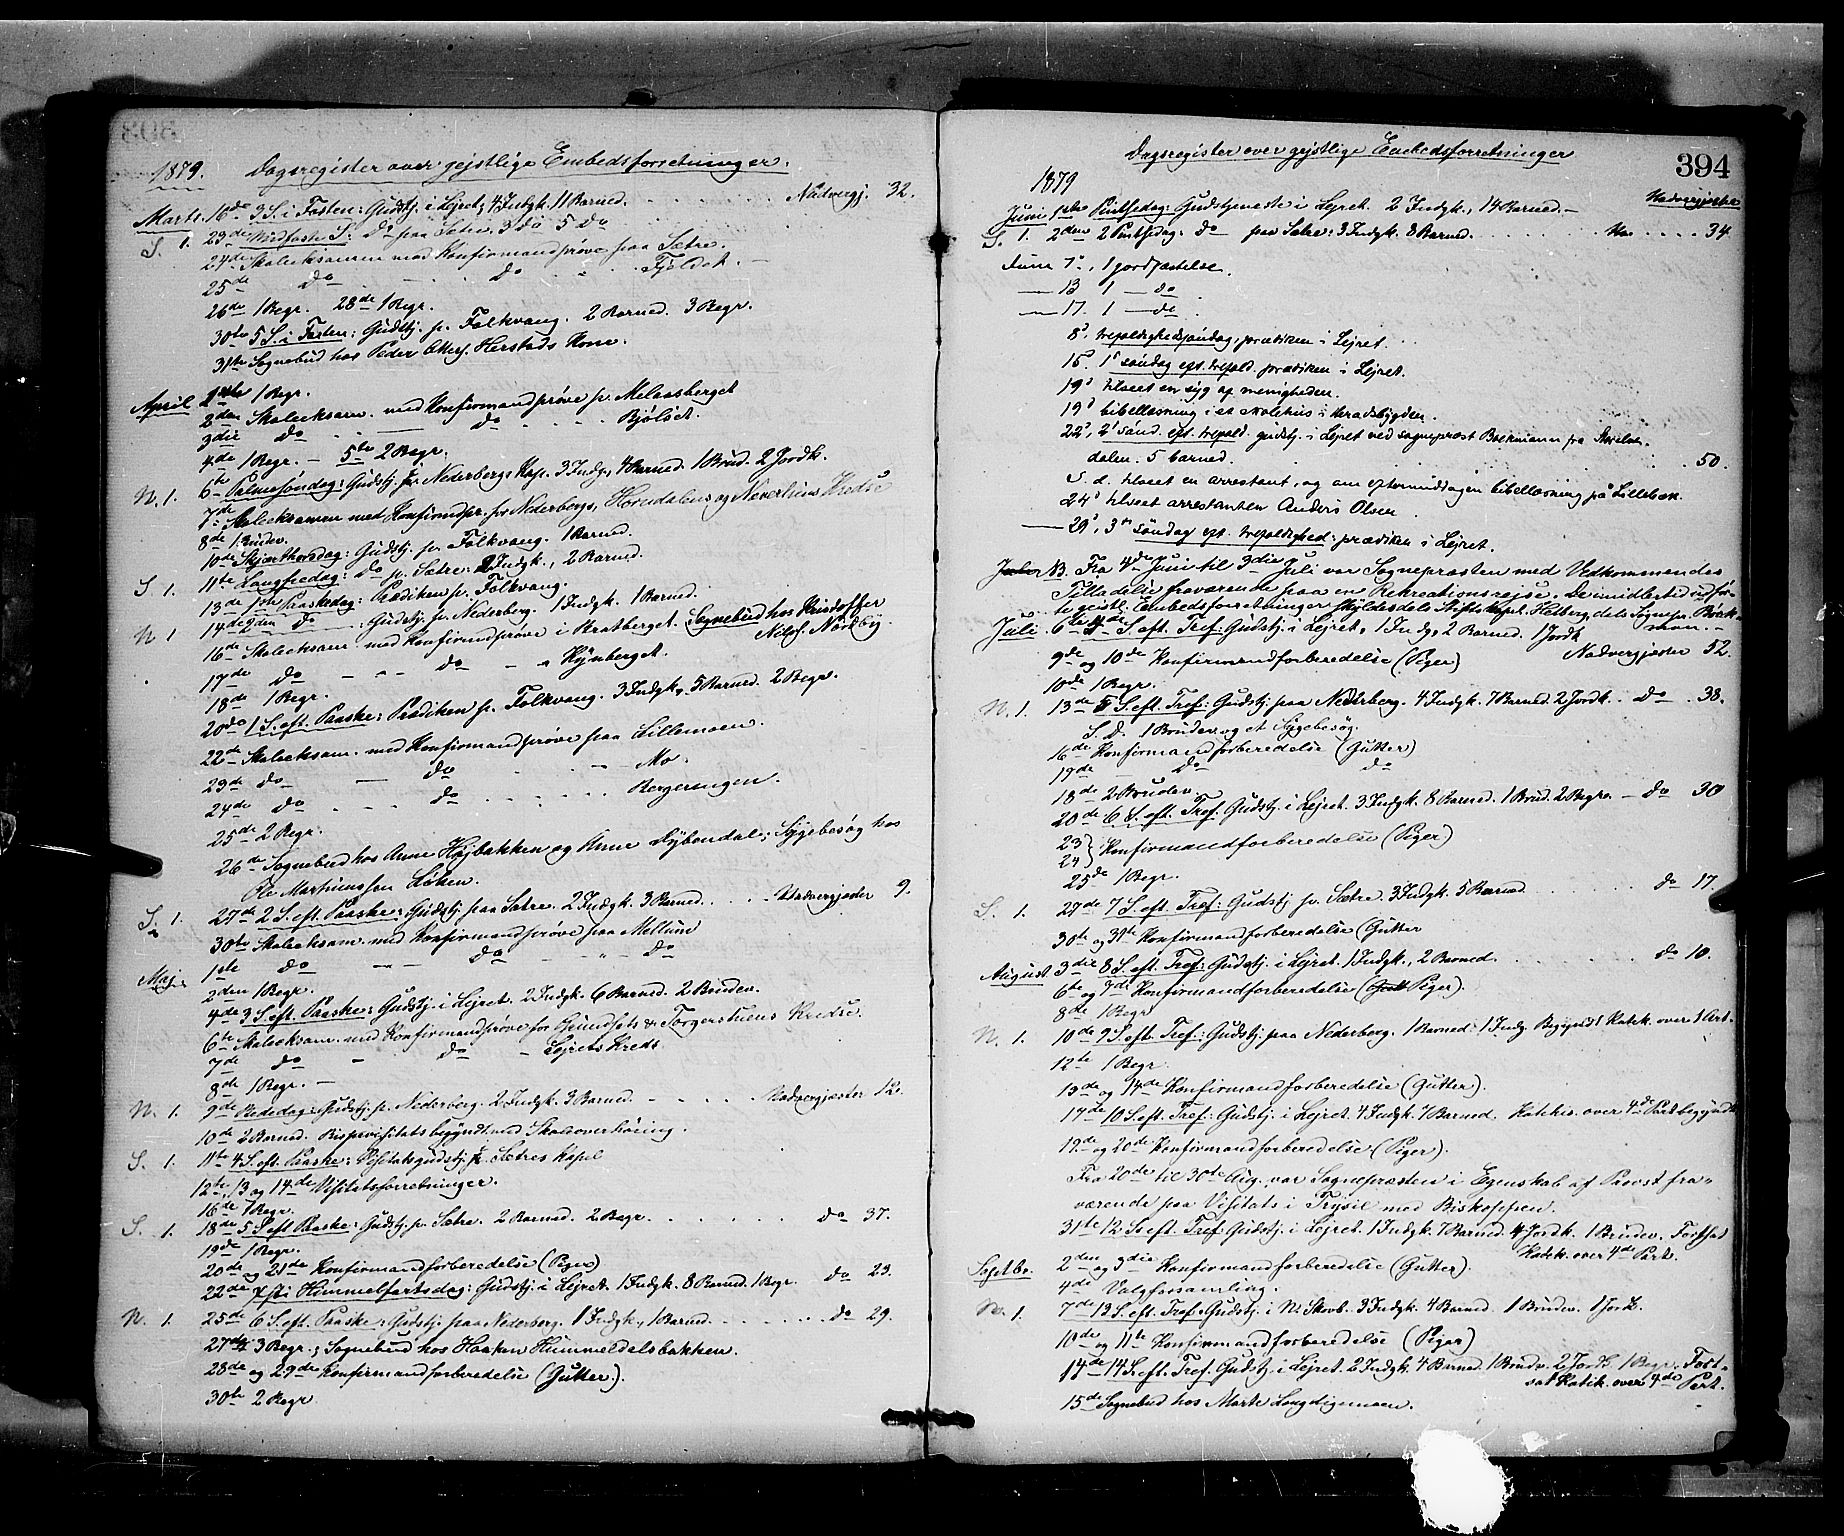 1879. Dagsregister over gejstlige Embedsforretninger.
Marts. 16de 3 S. i Fasten: Gudstj. i Lejret, 4 Indgk. 11 Barned. Nadvergj. 32.
S. 1. 23de Midfaste S: Do paa Sætre. 3 Do 5 Do
24de Skoleeksamen med Konfirmandprøve paa Sætre.
25de Do Do Fjeldet.
26de 1 Begr. 28de 1 Begr.
30te 5 S. i Fasten: Gudstj. p. Folkvang. 2 Barned. 3 Begr.
31te Sognebud hos Peder Herstads Kone.
April 1ste 1 Begr.
2den Skoleeksam. med Konfirmandprøve p. Melaasberget
3die Do Do Bjølset.
4de 1 Begr. – 5te 2 Begr.
N. 1. 6te Palmesøndag: Gudstj. p. Nederbergs Kap. 3 Indg., 4 Barned. 1 Brud. 2 Jordk.
7de Skoleeksamen med Konfirmpr. for Nederbergs, Horndalens og Kredse
8de 1 Brudev.
10de Skjærthorsdag: Gudstj. p. Folkvang. 1 Barned.
S 1. 11te Langfredag: Do p. Sætre: 2 Indgk., 2 Barned.
13de 1ste Paaskedag: Prædiken p. Folkvang.
N 1 14de 2den Do Gudstj. p. Nederberg. 1 Indgk. 1 Barned.
16de Skoleeksam. med Konfirmandprøve i Bratberget. Sognebud hos Kristoffer Nilsf. Nordbig.
17de Do Do Kynberget.
18de 1 Begr.
20de 1 S. eft. Paaske: Prædiken p. Folkvang. 3 Indgk, 5 Barned. 2 Begr.
22de Skoleeksam. med Konfirmandprøve paa Lillemoen.
23de Do Do Mo.
24de Do Do Bergeringen.
25de 2 Begr.
26de Sognebud hos Anne Højbakken og Anne Dybendal; Sygebesøg hos
Ole Martinussen Løken.
S. 1. 27de 2 S. eft. Paaske: Gudstj. paa Sætre. 2 Indgk. 3 Barned. Nadvergjæster 9.
30te Skoleeksam. med Konfirmandprøve paa Mellum
Maj. 1ste Do Do Do
2den 1 Begr.
4de 3 S. eft. Paaske: Gudstj. i Lejret. 2 Indgk. 6 Barned. 2 Brudev.
6te Skoleeksam. med Konfirmandprøve for Grundsets & Torgerstuens Kredse.
7de Do Do Lejrets Kreds
8de 1 Begr.
N. 1. 9de Bededag: Gudstj. p. Nederberg. 2 Indgk. 3 Barned. Nadvergjæster 12.
10de 2 Barned. Bispevisitats begyndt med Skoleoverhøring.
S. 1. 11te 4 S. eft. Paaske: Visitatsgudstj. p. Sætres Kapel
12te, 13 og 14de Visitatsforretninger.
16de 1 Begr.
S. 1. 18de 5 S. eft. Paaske: Gudstj. p. Sætre. 2 Barned. 2 Begr. do 37.
19de 1 Begr.
20de og 21de Konfirmandforberedelse (Piger)
22de Kristi Himmelfartsdag: Gudstj. i Lejret. 1 Indgk. 8 Barned. 1 Begr. do 23.
N. 1. 25de 6 S. eft. Paaske: Gudstj. paa Nederberg. 1 Indgk., 1 Barned. do 29.
27de 3 Begr.; Sognebud hos Haaken Hummeldalsbakken.
28de og 29de Konfirmandforberedelse (Gutter).
30te 2 Begr
394
Dagsregister over gejstlige Embedsforretninger
1879 Nadvergjæster
Juni 1ste Pintsedag: Gudstjeneste i Lejret. 2 Indgk., 14 Barned. –
S. 1. 2den 2 Pintsedag: do paa Sætre: 3 Indgk. 8 Barned. 34.
Juni 7d, 1 jordfæstelse.
— 13 1 — do
— 17. 1 — do
8d. trefoldighedssøndag, prædiken i Lejret.
15d. 1s søndag eft. trefold. prædiken i Lejret.
19d tilseet en syg af menigheden.
19d bibellæsning i et skolehus i Kradsbygden.
22d, 2d sönd. eft. trefold. gudstj. i Lejret ved sognepræst Bøckmann fra
dalen. 5 barned. 50.
S. d. tilseet en arrestant, og om eftermiddagen bibellæsning på Lillebæk.
24d tilseet arrestanten Anders Olsen
— 29d, 3de söndag eft. trefoldighed: prædiken i Lejret.
NB. Fra 4de Juni til 3die Juli var Sognepræsten med Vedkommendes
Tilladelse fraværende paa en Rekreationsrejse. De imidlertid udfør-
te geistl. Embedsforretninger skyldes dels Stiftskapel. Halberg, dels Sognepr. Bøck-
man.
Juli 6te 4de S. eft. Tref: Gudstj. i Lejret, 1 Indg, 2 Barned. 1 Jordk Nadvergjæster 52.
9de og 10de Konfirmandforberedelse (Piger)
10de 1 Begr.
N. 1. 13de 5 S. eft. Tref: Gudstj. paa Nederberg. 4 Indgk. 7 Barned. 2 Jordk. Do 38.
S. D. 1 Brudev. og et Sygebesøg.
16de Konfirmandforberedelse (Gutter)
17de Do do
18de 2 Brudev.
20de 6 S. eft. Tref: Gudstj. i Lejret. 3 Indgk. 8 Barned. 1 Brud. 2 Begr. – Do 30
23
24 } Konfirmandforberedelse (Piger)
25de 1 Begr.
S. 1. 27de 7 S. eft. Tref: Gudstj p. Sætre. 3 Indgk. 5 Barned. do 17.
30te og 31te Konfirmandforberedelse (Gutter
August 3die 8 S. eft. Tref: Gudstj. i Lejret. 1 Indgk., 2 Barned. do 10.
6te og 7de Konfirmandforberedelse (Gutt Piger).
8de 1 Begr
N. 1. 10de 9 S. eft. Tref: Gudstj. paa Nederberg. 1 Barned: 1 Indg. Begyndt Katek. over 1 Art.
12te 1 Begr.
13de og 14de Konfirmandforberedelse (Gutter).
17de 10 S. eft. Tref: Gudstj. i Lejret. 4 Indgk. 7 Barned. Katekis. over 4de Part begyndt
19de og 20de Konfirmandforberedelse (Piger).
Fra 20de til 30te Aug. var Sognepræsten i Egenskab af Provst fra-
værende paa Visitats i Trysil med Biskoppen.
31te 12 S. eft. Tref: Gudstj. i Lejret. 1 Indgk. 7 Barned. 4 Jordk. 1 Brudev. Fortsat
Katek. over 4de Part.
Septbr. 2den og 3die Konfirmandforberedelse (Gutter).
4de Valgforsamling.
N. 1. 7de 13 S. eft. Tref: Gudstj. i N. Skovb. 3 Indgk. 4 Barned. 1 Brudev. 1 Jordk.
10de og 11te Konfirmandforberedelse (Piger)
14de 14 S. eft. Tref. Gudstj. i Lejret. 2 Indgk. 4 Barned. 1 Brudv. 2 Jordk. 1 Begr. Fort-
sat Katek. over 4de Part.
15de Sognebud hos Marte Langdigemoen.